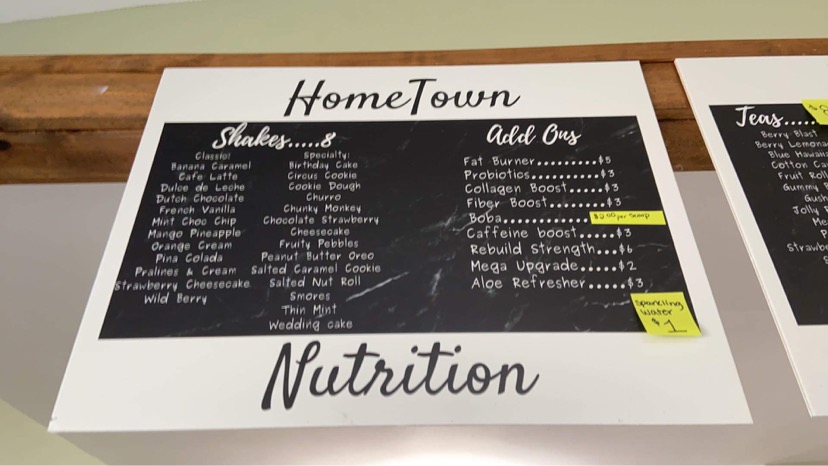 HomeTown
Shakes.....8
Classic:
Banana Caramel
Cafe Latte
Dulce de Leche
Dutch Chocolate
French Vanilla
Mint Choc Chip
Mango Pineapple
Orange Cream
Pina Colada
Pralines & Cream
Strawberry Cheesecake
Wild Berry
Specialty:
Birthday Cake
Circus Cookie
Cookie Dough
Churro
Chunky Monkey
Chocolate Strawberry
Cheesecake
Fruity Pebbles
Peanut Butter Oreo
Salted Caramel Cookie
Salted Nut Roll
Smores
Thin Mint
Wedding cake
Add Ons
Fat Burner..........$5
Probiotics............$3
Collagen Boost.....$3
Fiber Boost.........$3
Boba.............. $2.00 per Scoop
Caffeine boost.....$3
Rebuild Strength....$6
Mega Upgrade......$2
Aloe Refresher......$3
Sparkling
Water
$1
Nutrition
Teas.....
Berry Blast
Berry Lemona
Blue Hawaii
Cotton Ca
Fruit Roll
Gummy
Gush
Jolly
Me
P
Strawb